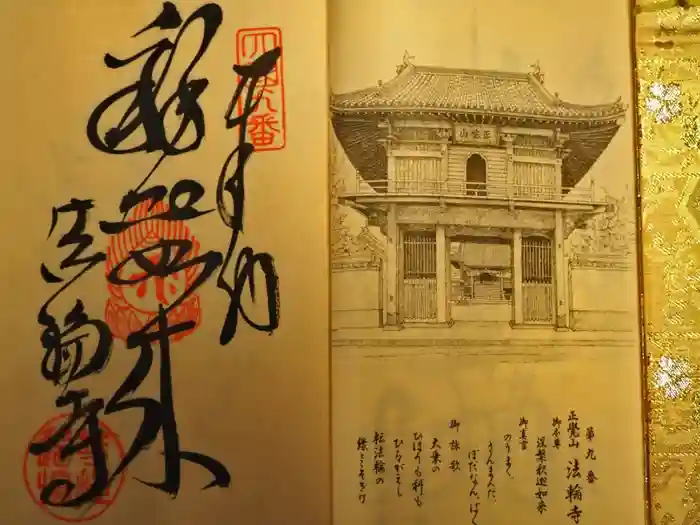 四国九番
奉納
釈迦如来
法輪寺
正覺山
第九番
正覺山 法輪寺
御本尊 涅槃釈迦如来
御真言
のうまく、
さんまんだ、
ぼだなん、ばく
御詠歌
大乗の
ひほうも科も
ひるがえし
転法輪の
縁とこそきけ